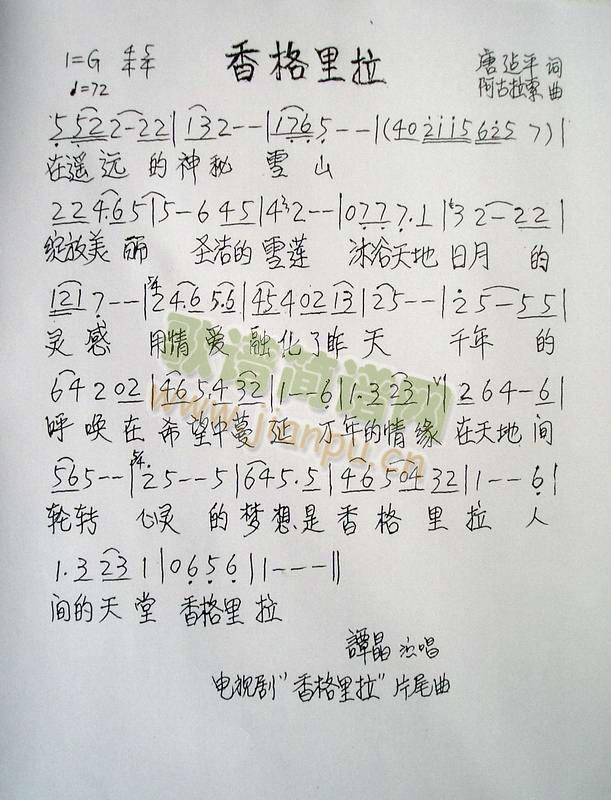 香格里拉
1=G 4/4 5/4
♩=72
唐跃平 词
阿古拉泰 曲
5 5 5 2 2 - 2 2 | 1 3 2 - - | 1 7 6 5 - - - | (4 0 2 1 1 5 6 2 5 7) |
在遥远 的神秘 雪山
2 2 4.6 5 | 5 - 6 4 5 | 4 3 2 - - | 0 7 7 7.1 | 3 2 - 2 2 |
绽放美丽 圣洁的雪莲 沐浴天地日月 的
1 2 1 7 - - | 2 4.6 5.6 | 4 5 4 0 2 1 3 | 2 5 - - - | 2 5 - 5 5 |
灵感 用情爱融化了昨天 千年的
6 4 2 0 2 | 4 6 5.4 3 2 | 1 - - 6 | 1.3 2 3 1 | 2 6 4 - 6 |
呼唤在希望中蔓延 万年的情缘在天地间
5 6 5 - - | 2 5 - - 5 | 6 4 5.5 | 4 6 5 0 4 3 2 | 1 - - 6 |
轮转 心灵的梦想是香格里拉 人
1.3 2 3 1 | 0 6 5 6 | 1 - - - ‖
间的天堂 香格里拉
譚晶 演唱
电视剧"香格里拉"片尾曲
歌谱简谱网
www.jianpu.cn